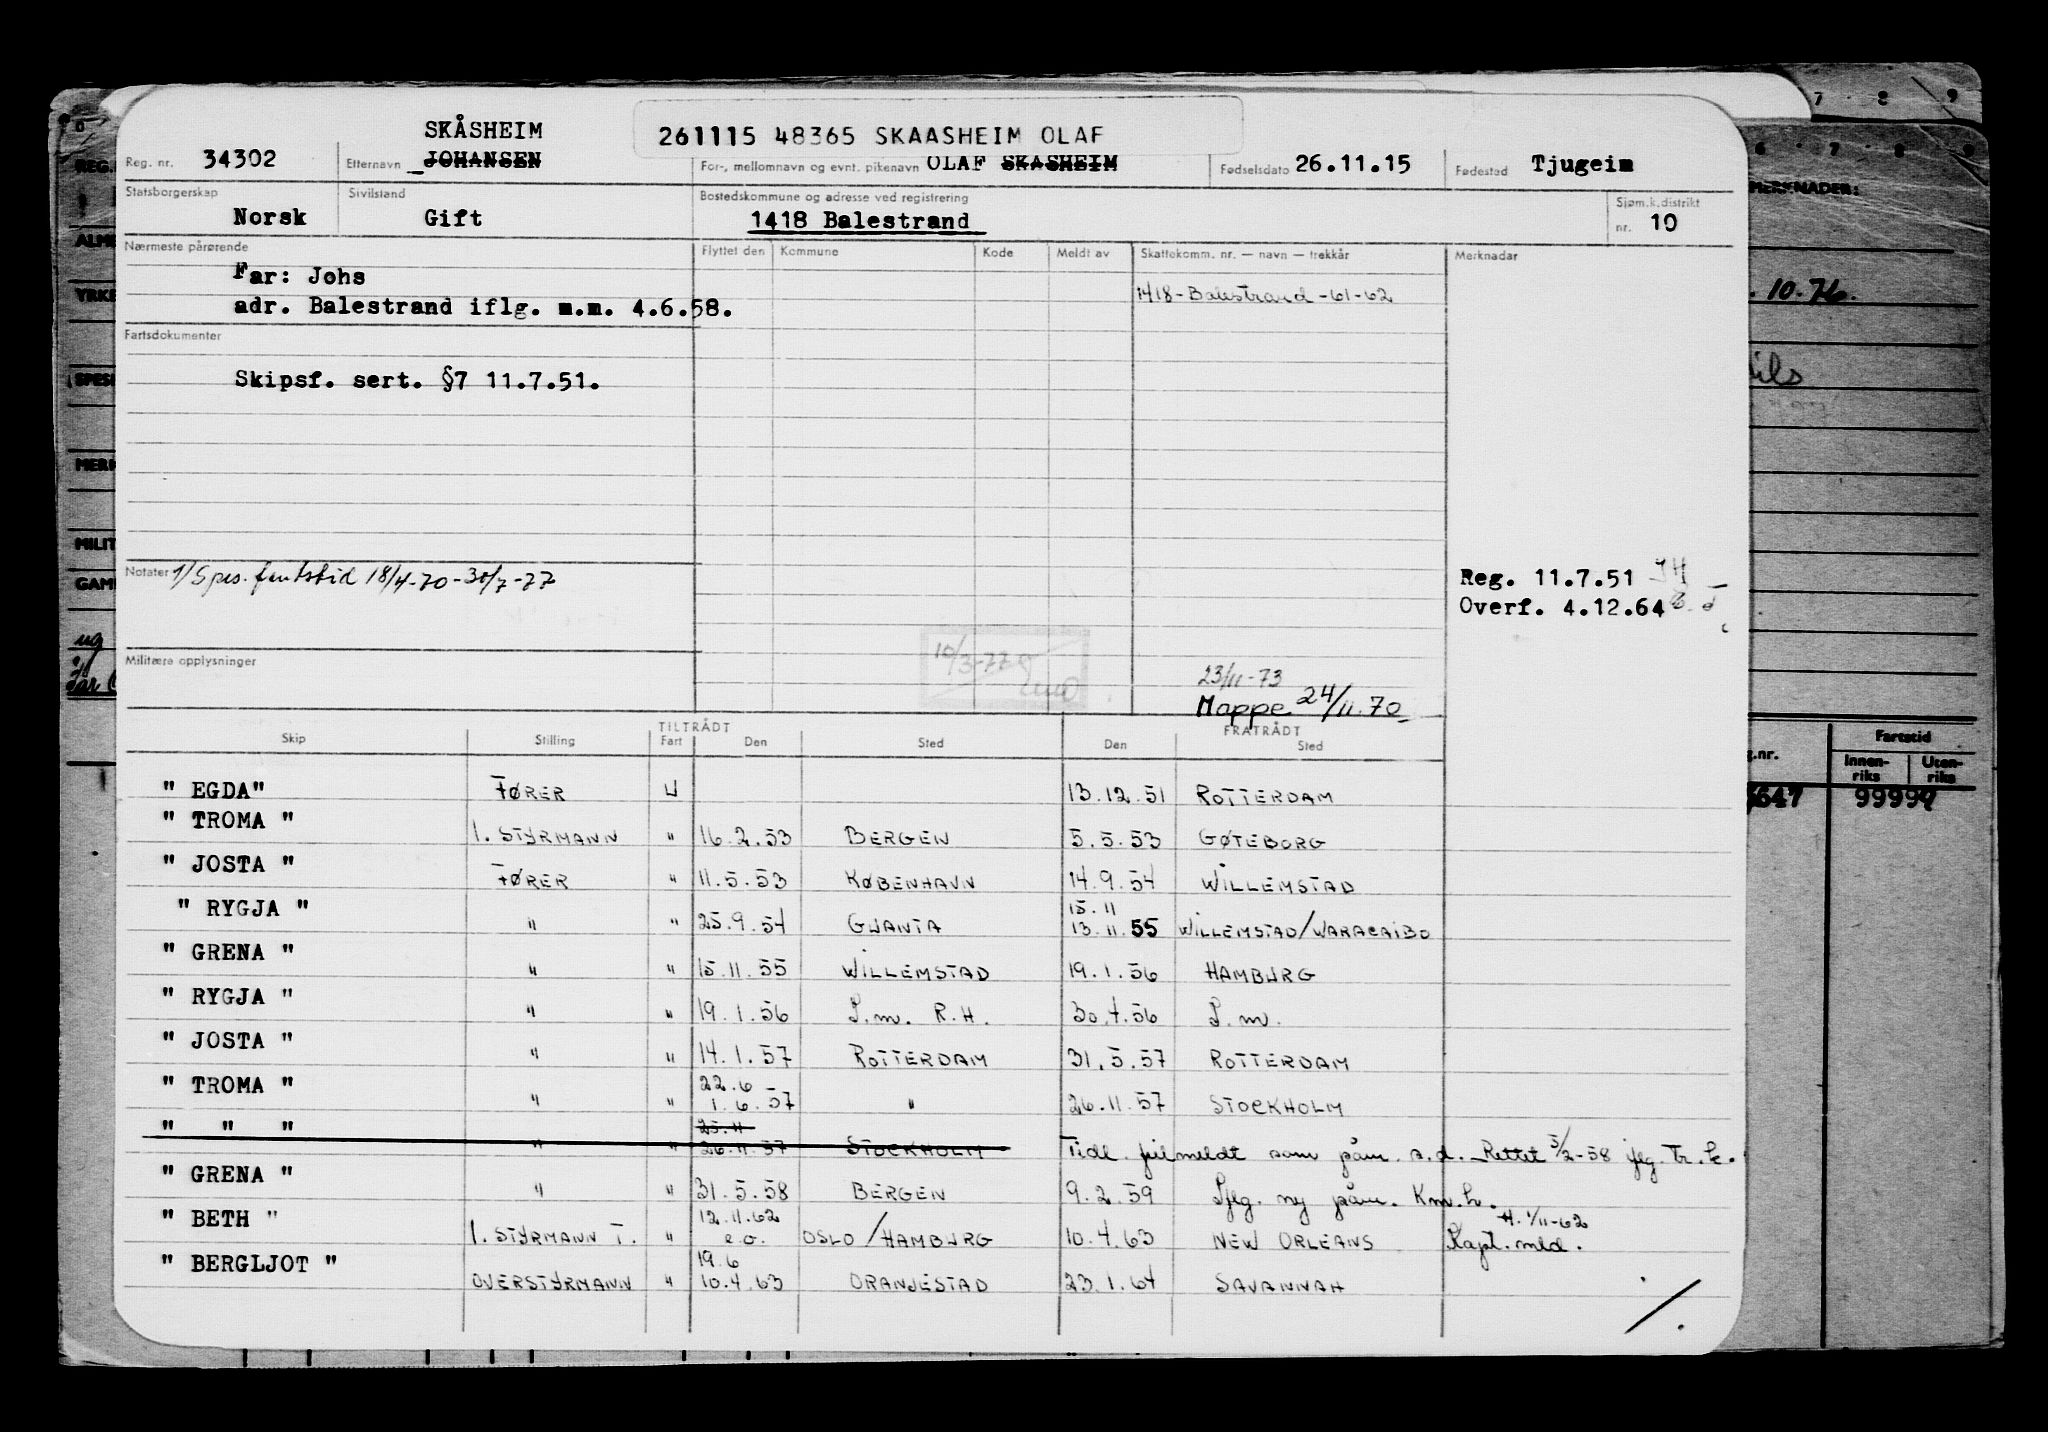 261115 48365 SKAASHEIM OLAF
SKÅSHEIM
Reg. nr. 34302 Etternavn JOHANSEN For-, mellomnavn og evnt. pikenavn OLAF SKASHEIM Fødselsdato 26.11.15 Fødested Tjugeim
Statsborgerskap Norsk Sivilstand Gift Bostedskommune og adresse ved registrering 1418 Balestrand Sjøm.k.distrikt nr. 10
Nærmeste pårørende Flyttet den Kommune Kode Meldt av Skattekomm. nr. — navn — trekkår Merknader
Far: Johs
1418-Balestrand-61-62
adr. Balestrand iflg. m.m. 4.6.58.
Fartsdokumenter
Skipsf. sert. §7 11.7.51.
Notater 1/ Spes. fartstid 18/4-70-30/7-77
Reg. 11.7.51
Overf. 4.12.64
10/3-77
Militære opplysninger
23/11-73
Mappe 24/11.70
TILTRÅDT FRATRÅDT
Skip Stilling Fart Den Sted Den Sted
" EGDA" FØRER U 13.12.51 ROTTERDAM
" TROMA " 1. STYRMANN " 16.2.53 BERGEN 5.5.53 GØTEBORG
" JOSTA " FØRER " 11.5.53 KØBENHAVN 14.9.54 WILLEMSTAD
15.11
" RYGJA " " " 25.9.54 GUANTA 13.11.55 WILLEMSTAD/MARACAIBO
" GRENA " " " 15.11.55 WILLEMSTAD 19.1.56 HAMBURG
" RYGJA " " " 19.1.56 S.m. R.H. 30.4.56 S.m.
" JOSTA " " " 14.1.57 ROTTERDAM 31.5.57 ROTTERDAM
22.6
" TROMA " " " 1.6.57 " 26.11.57 STOCKHOLM
25.11
" " " " " 26.11.57 STOCKHOLM Tidl. feilmeldt som påm. s.d. Rettet 5/2-58 iflg. Tr.k.
" GRENA " " " 31.5.58 BERGEN 9.2.59 Iflg. ny påm. Km.h.
12.11.62
" BETH " 1. STYRMANN T. " e.o. OSLO/HAMBURG 10.4.63 NEW ORLEANS Kapt. mld. H. 1/11-62
19.6
" BERGLJOT " OVERSTYRMANN " 10.4.63 ORANJESTAD 23.1.64 SAVANNAH
7 8 9
6 7 8 9
MERKNADER:
10-76.
Fartstid
Innen-riks Uten-riks
647 99999